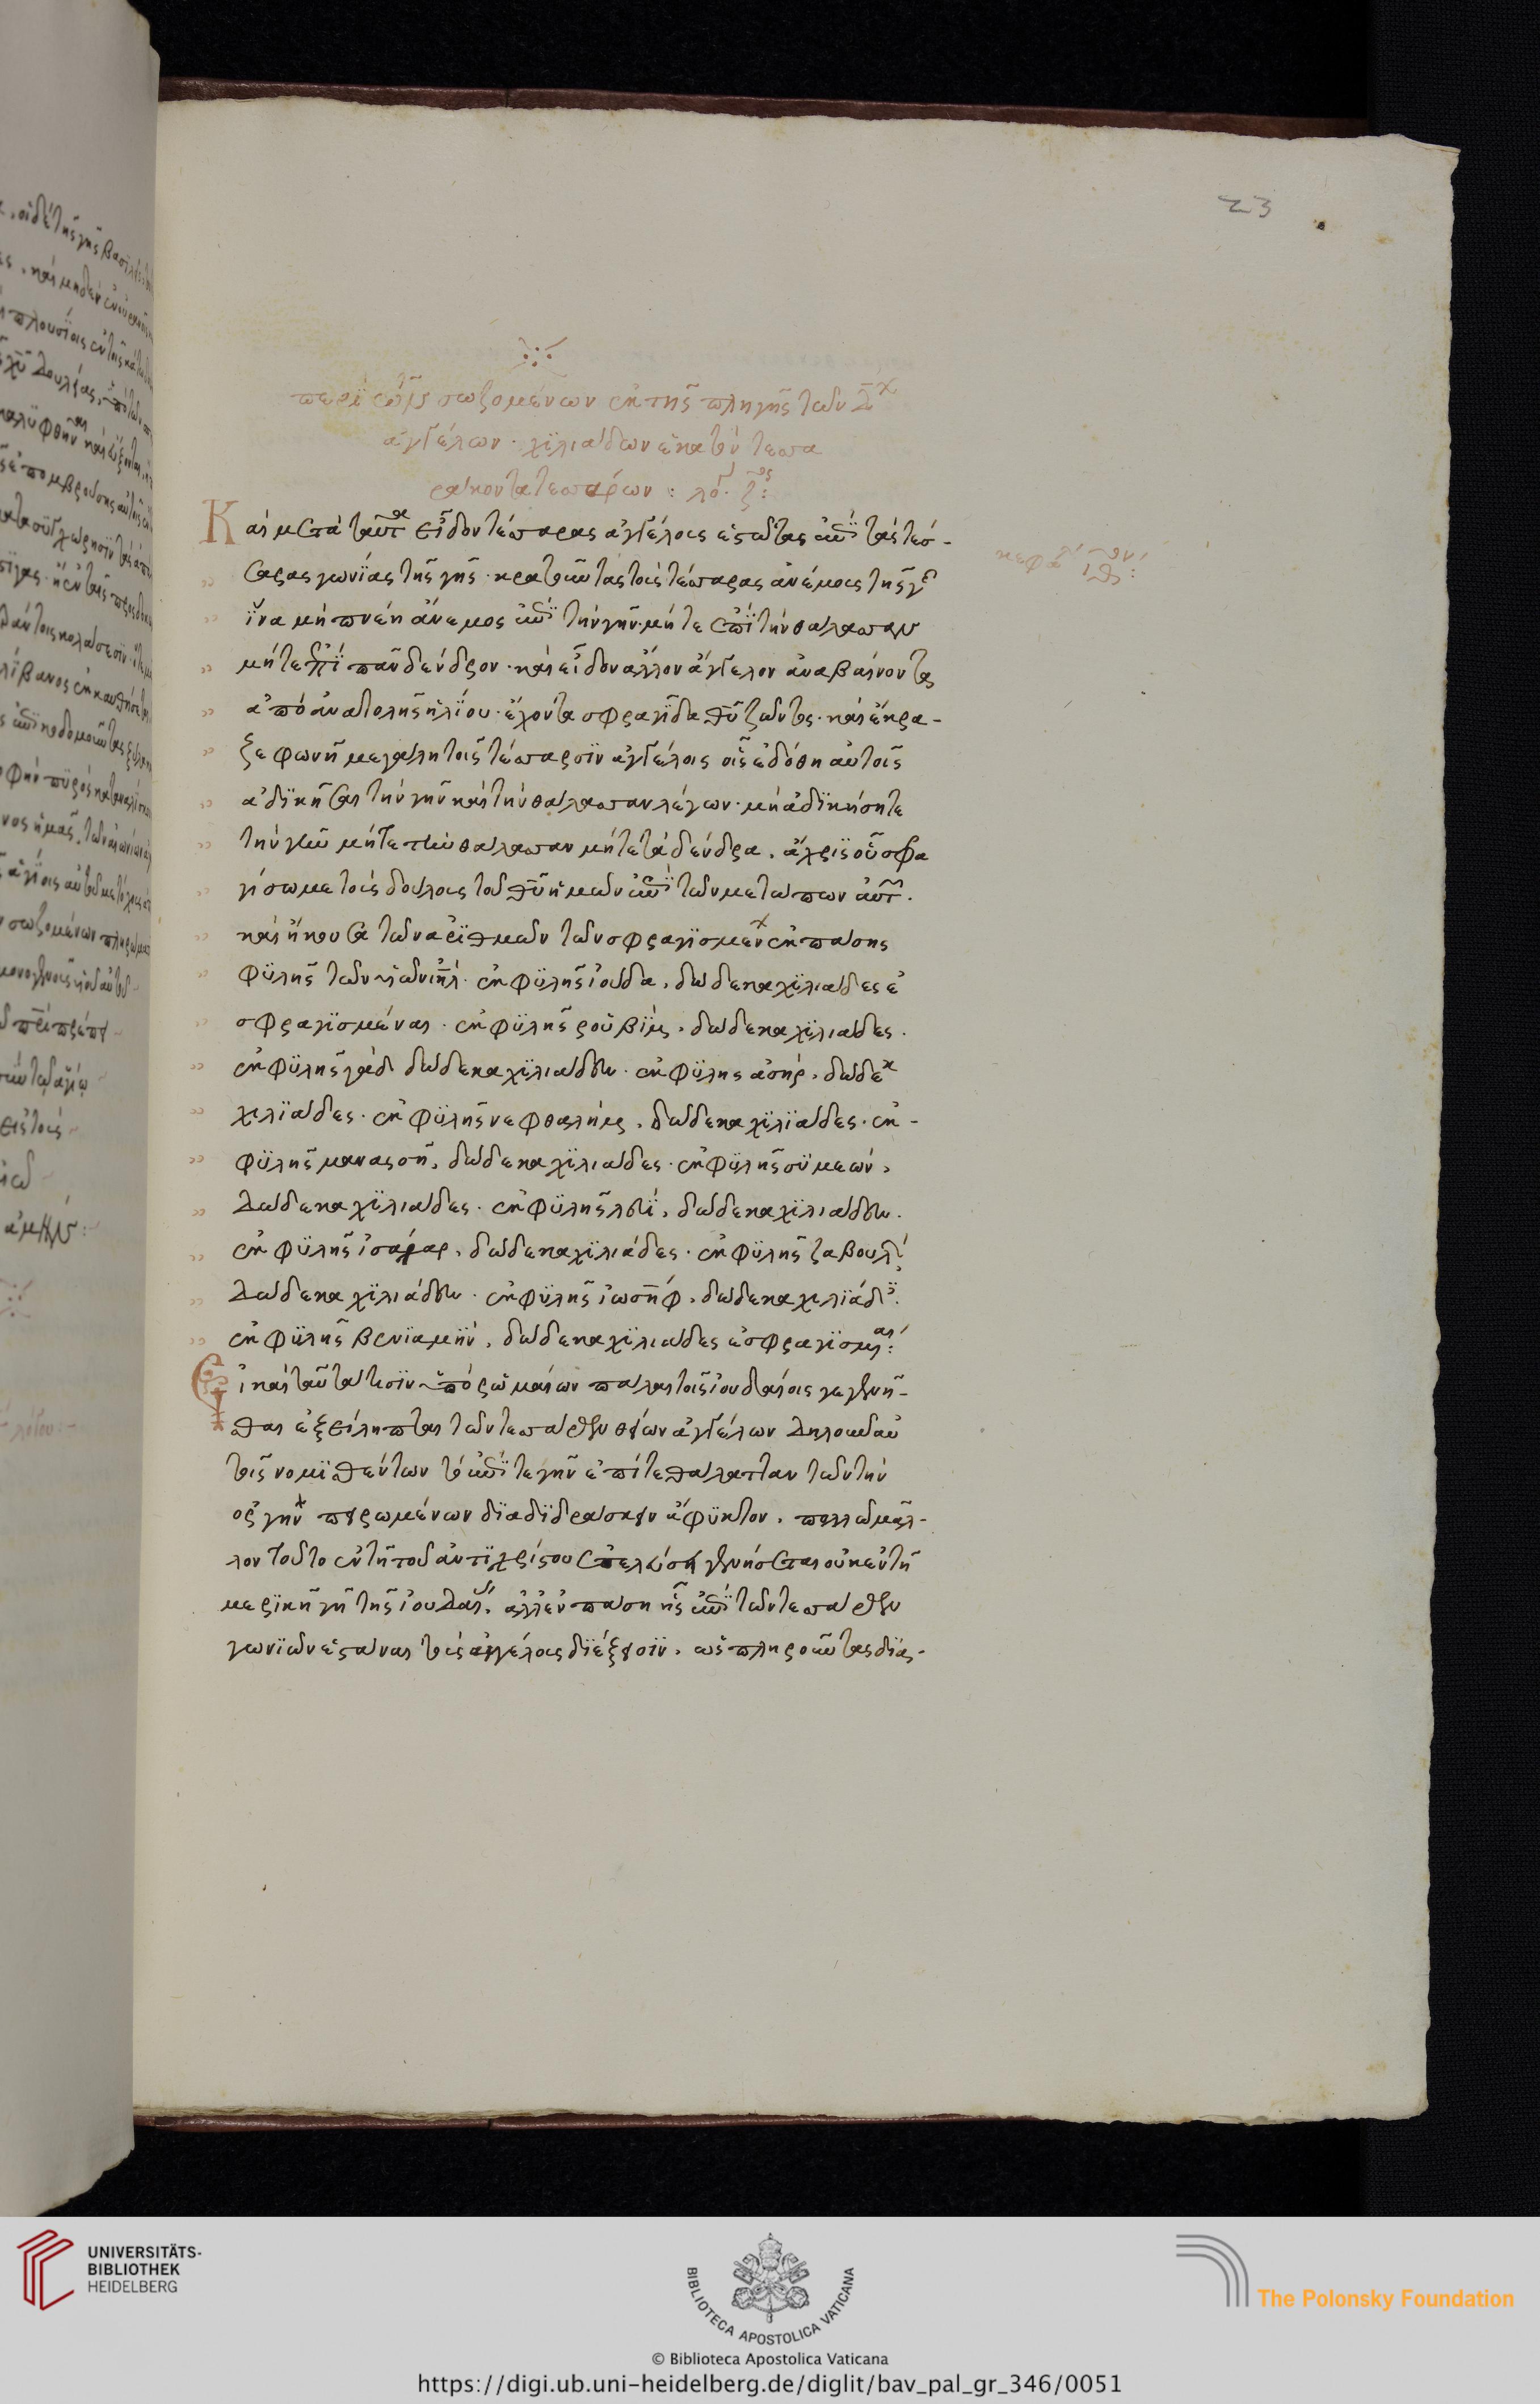 23
περὶ τῶν σωζομένων ἐκ τῆς πληγῆς τῶν δ
ἀγγέλων · χιλιάδων ἑκατὸν τεσσα
ρακοντατεσσάρων : λό · ζ :
Καὶ μετὰ ταῦτα εἶδον τέσσαρας ἀγγέλους ἑστῶτας ἐπὶ τὰς τέσ-
κεφα ιθ :
σαρας γωνίας τῆς γῆς · κρατοῦντας τοὺς τέσσαρας ἀνέμους τῆς γῆς
ἵνα μὴ πνέη ἄνεμος ἐπὶ τὴν γῆν · μήτε ἐπὶ τὴν θάλασσαν
μήτε ἐπὶ πᾶν δένδρον · καὶ εἶδον ἄλλον ἄγγελον ἀναβαίνοντα
ἀπὸ ἀνατολῆς ἡλίου · ἔχοντα σφραγῖδα θῦ ζῶντος · καὶ ἔκρα-
ξε φωνῆ μεγάλη τοῖς τέσσαρσιν ἀγγέλοις οἷς ἐδόθη αὐτοῖς
ἀδικῆσαι τὴν γῆν καὶ τὴν θάλασσαν λέγων · μὴ ἀδικήσητε
τὴν γῆν μήτε τὴν θάλασσαν μήτε τὰ δένδρα, ἄχρις οὗ σφρα
γίσωμε τοὺς δούλους τοῦ θῦ ἡμῶν ἐπὶ τῶν μετώπων αὐτ .
καὶ ἤκουσα τῶν ἀριθμῶν τῶν σφραγισμένων ἐκ πάσης
φυλῆς τῶν υἱῶν ιηλ · ἐκ φυλῆς ἰούδα, δώδεκα χιλιάδες ἐ
σφραγισμέναι · ἐκ φυλῆς ρουβὶμ, δώδεκα χιλιάδες .
ἐκ φυλῆς γὰδ δώδεκα χιλιάδες · ἐκ φυλῆς ἀσὴρ, δώδεκα
χιλιάδες · ἐκ φυλῆς νεφθαλὴμ, δώδεκα χιλιάδες · ἐκ -
φυλῆς μανασσῆ, δώδεκα χιλιάδες · ἐκ φυλῆς συμεὼν,
δώδεκα χιλιάδες · ἐκ φυλῆς λευὶ, δώδεκα χιλιάδες .
ἐκ φυλῆς ἰσαχαρ, δώδεκα χιλιάδες · ἐκ φυλῆς ζαβουλ
δώδεκα χιλιάδες · ἐκ φυλῆς ἰωσὴφ, δώδεκα χιλιάδ .
ἐκ φυλῆς βενιαμὴν, δώδεκα χιλιάδες ἐσφραγισμέναι :
Εἰ καὶ ταῦτά τισιν ὑπὸ ρωμαίων πάλαι τοῖς ἰουδαίοις γεγενῆ-
σθαι ἐξείληπται τῶν τεσσάρων θείων ἀγγέλων δηλοῦν αὐ
τοῖς νομισθέντων τὸ ἐπί τε γῆν ἐπί τε θάλατταν τῶν τὴν
ὀργὴν πειρωμένων διαδιδράσκειν ἄφυκτον, πολλῶ μᾶλ-
λον τοῦτο ἐν τῆ τοῦ ἀντιχρίστου ἐπελεύσει γενήσεται οὐκ ἐν τῆ
μερικῆ γῆ τῆς ἰουδαί, ἀλλ' ἐν πάση ἧς ἐπὶ τῶν τεσσάρων
γωνιῶν ἑστάναι τοὺς ἀγγέλους διέξεισιν, ὡς πληροῦντας δια-
UNIVERSITÄTS-
BIBLIOTHEK
HEIDELBERG
BIBLIOTECA APOSTOLICA VATICANA
The Polonsky Foundation
© Biblioteca Apostolica Vaticana
https://digi.ub.uni-heidelberg.de/diglit/bav_pal_gr_346/0051